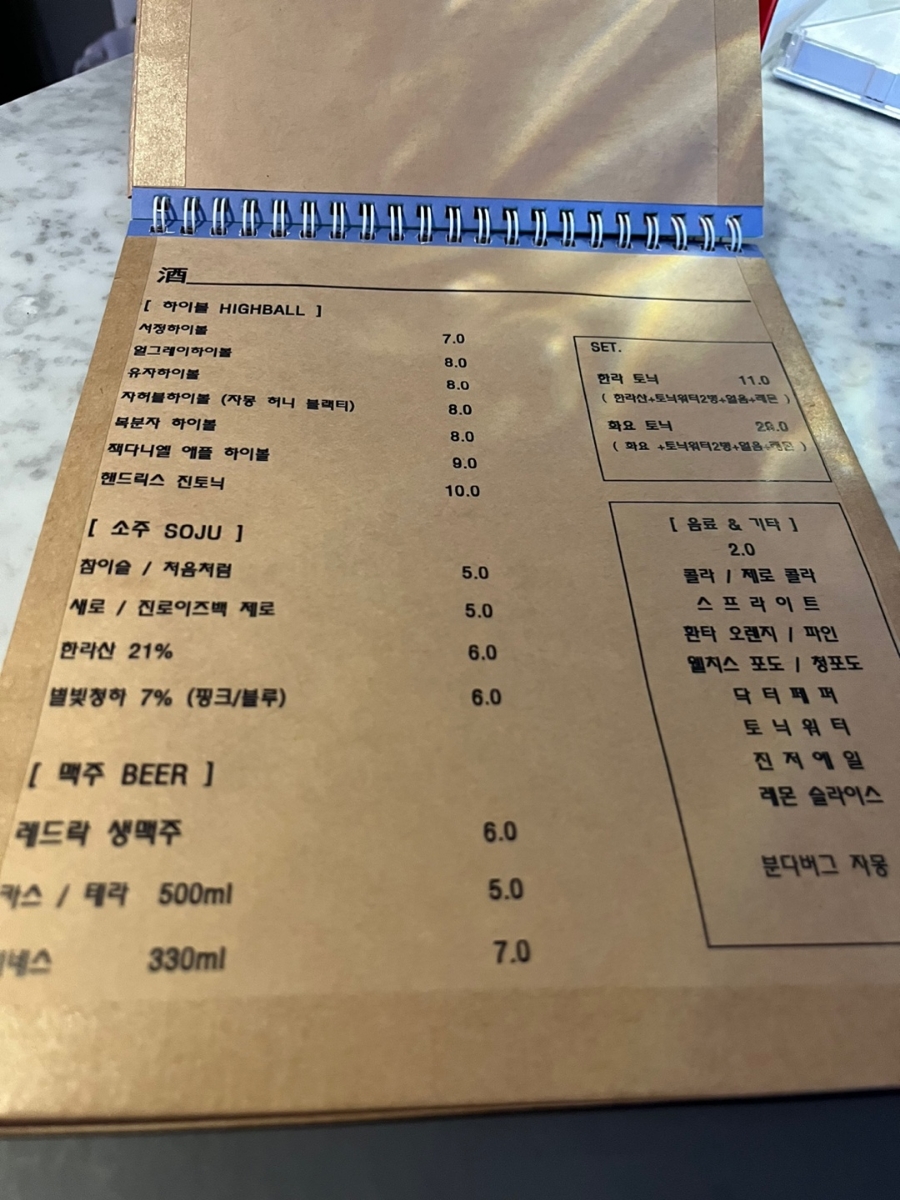 酒
[ 하이볼 HIGHBALL ]
서정하이볼 7.0
얼그레이하이볼 8.0
유자하이볼 8.0
자허블하이볼 (자몽 허니 블랙티) 8.0
복분자 하이볼 8.0
잭다니엘 애플 하이볼 9.0
헨드릭스 진토닉 10.0
[ 소주 SOJU ]
참이슬 / 처음처럼 5.0
새로 / 진로이즈백 제로 5.0
한라산 21% 6.0
별빛청하 7% (핑크/블루) 6.0
[ 맥주 BEER ]
레드락 생맥주 6.0
카스 / 테라 500ml 5.0
네스 330ml 7.0
SET.
한라 토닉 11.0
( 한라산+토닉워터2병+얼음+레몬 )
화요 토닉
( 화요 +토닉워터2병+얼음+레몬 )
[ 음료 & 기타 ]
2.0
콜라 / 제로 콜라
스프라이트
환타 오렌지 / 파인
웰치스 포도 / 청포도
닥터페퍼
토닉워터
진저에일
레몬 슬라이스
분다버그 자몽